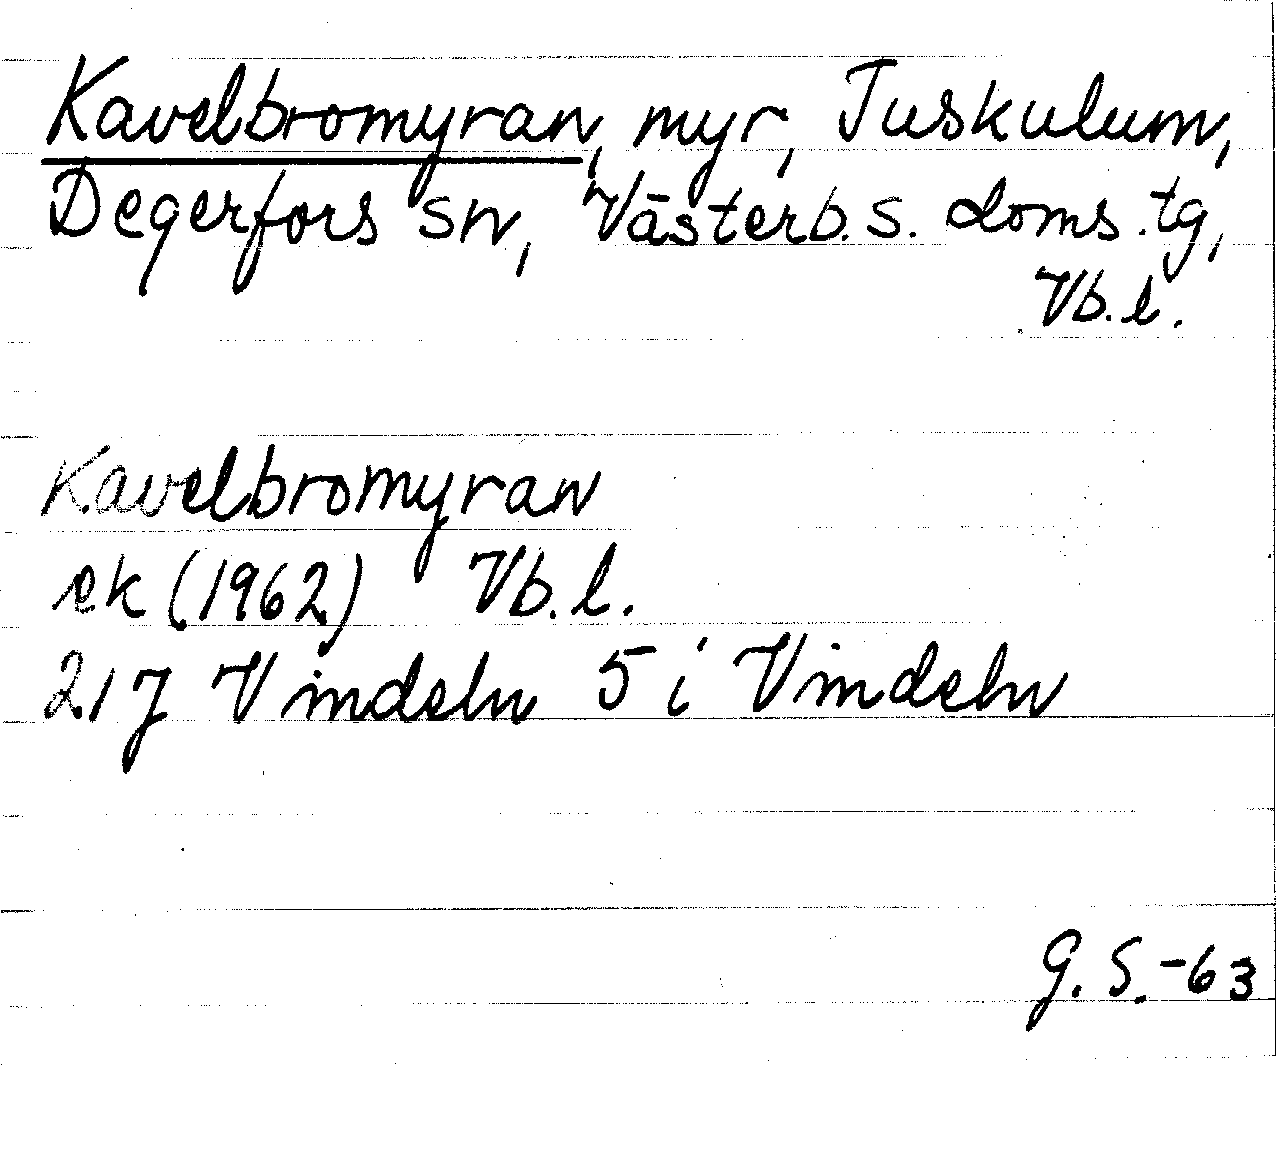 Kavelbromyran, myr, Tuskulum,
Degerfors sn, Västerb. s. doms. tg,
Vb. l.
Kavelbromyran
ek (1962) Vb. l.
21J Vindeln 5 i Vindeln
G. S. -63